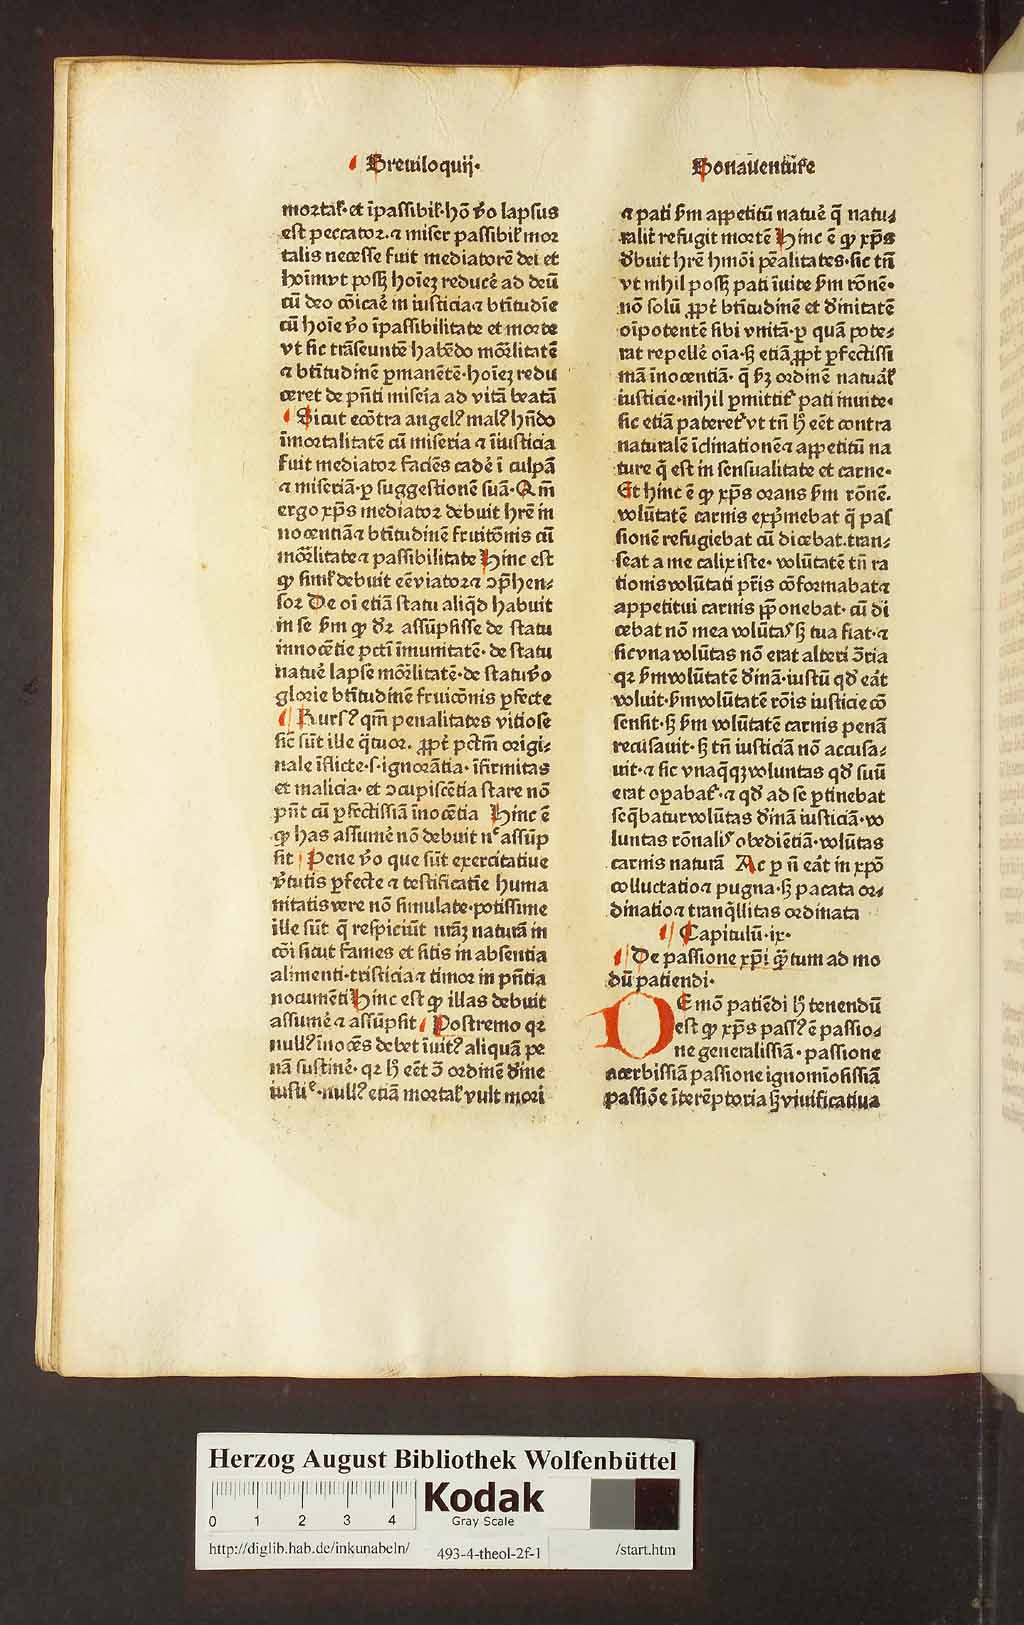 Breuiloquij·
Bonauenture
mortal̄· et īpassibil̄· hō v̄o lapsus
est peccator· ⁊ miser passibil̄ mor
talis necesse fuit mediatorē dei et
hoīm vt possꝫ hoīeꝫ reducē ad deū
cū deo cōicaē in iusticia ⁊ btītudīe
cū hoīe v̄o īpassibilitate et morte
vt sic trāseuntē habēdo mōrlitatē
⁊ btītudinē ꝑmanētē· hoīeꝫ redu
ceret de pn̄ti miseīa ad vitā beatā
Sicut ecōtra angelꝰ malꝰ hn̄do
īmortalitatē cū miseria ⁊ īiusticia
fuit mediator faciēs cadē ī culpā
⁊ miseriā· ꝑ suggestionē suā· Qm̄
ergo xp̄s mediator debuit hr̄e in
nocentiā ⁊ btītudinē fruitōnis cū
mōrlitate ⁊ passibilitate Hinc est
ꝙ simil̄ debuit eē viator ⁊ ꝯp̄hen⸗
sor De oī etiā statu aliq̄d habuit
in se ẜm ꝙ dr̄ assūpsisse de statu
innocētie pctī īmunitatē· de statu
natuē lapse mōrlitatē· de statu v̄o
glorie btītudinē fruicōnis ꝑfecte
Rursꝰ qm̄ penalitates vitiose
sic̄ sūt ille q̄tuor· ꝓpt̄ pctm̄ origi⸗
nale īflicte· s· ignorātia· īfirmitas
et malicia· et ꝯcupiscētia stare nō
pn̄t cū ꝑfectissīā īnocētia Hinc ē
ꝙ has assumē nō debuit nͨ assūp
sit Pene v̄o que sūt exercitatiue
v̄tutis ꝑfecte ⁊ testificatīe huma
nitatis vere nō simulate· potissime
ille sūt q̄ respiciūt nr̄aꝫ naturā in
cōi sicut fames et sitis in absentia
alimenti· tristicia ⁊ timor in pn̄tia
nocumēti Hinc est ꝙ illas debuit
assumē ⁊ assūpsit Postremo qꝛ
nullꝰ īnocēs debet īuitꝰ aliquā pe
nā sustinē· qꝛ hͦ eēt ꝯ̄ ordinē dīne
iustiͤ· nullꝰ etiā mortal̄ vult mori
⁊ pati ẜm appetitū natuē q̄ natu⸗
ralit̄ refugit mortē Hinc ē ꝙ xp̄s
dbuit hr̄e hmōi pēalitates· sic tn̄
vt nihil possꝫ pati īuite ẜm rōnē·
nō solū ꝓpt̄ btītudinē et dīnitatē
oīpotentē sibi vnitā· ꝑ quā pote⸗
rat repellē oīa· sꝫ etiā ꝓpt̄ ꝑfectissi
mā īnocentiā· q̄ ẜꝫ ordinē natuāl̄
iusticie· nihil ꝑmittit̄ pati inuite·
sic etiā pateret̄ vt tn̄ hͦ eēt contra
naturalē īclinationē ⁊ appetitū na
ture q̄ est in sensualitate et carne·
Et hinc ē ꝙ xp̄s orans ẜm rōnē·
volūtatē carnis exp̄mebat q̄ pas
sionē refugiebat cū dicebat. tran⸗
seat a me calix iste· volūtatē tn̄ ra
tionis volūtati pr̄is cōformabat ⁊
appetitui carnis p̄ponebat· cū di
cebat nō mea volūtaſ sꝫ tua fiat· ⁊
sic vna volūtas nō erat alteri ꝯ̄ria
qꝛ ẜm volūtatē dīnā· iustū qd̄ eāt
voluit· ẜm volūtatē rōis iusticie cō
sensit· sꝫ ẜm volūtatē carnis penā
recusauit· sꝫ tn̄ iusticiā nō accusa⸗
uit· ⁊ sic vnaq̄qꝫ voluntas qd̄ suū
erat oꝑabat̄· ⁊ qd̄ ad se ꝑtinebat
seq̄batur volūtas dīnā iusticiā· vo
luntas rōnaliſ obediētiā· volūtas
carnis naturā Ac ꝑ n̄ eāt in xpō
colluctatio ⁊ pugna· sꝫ pacata or⸗
dinatio ⁊ tranq̄llitas ordinata
Capitulū·ix·
De passione xp̄i q̄tum ad mo
dū patiendi·
DE mō patiēdi hͦ tenendū
est ꝙ xp̄s passꝰ ē passio⸗
ne generalissīā· passione
acerbissīā passione ignomīosissīā
passiōe īterēptoria sꝫ viuificatiua
Herzog August Bibliothek Wolfenbüttel
0 1 2 3 4
Kodak
Gray Scale
http://diglib.hab.de/inkunabeln/
493-4-theol-2f-1
/start.htm